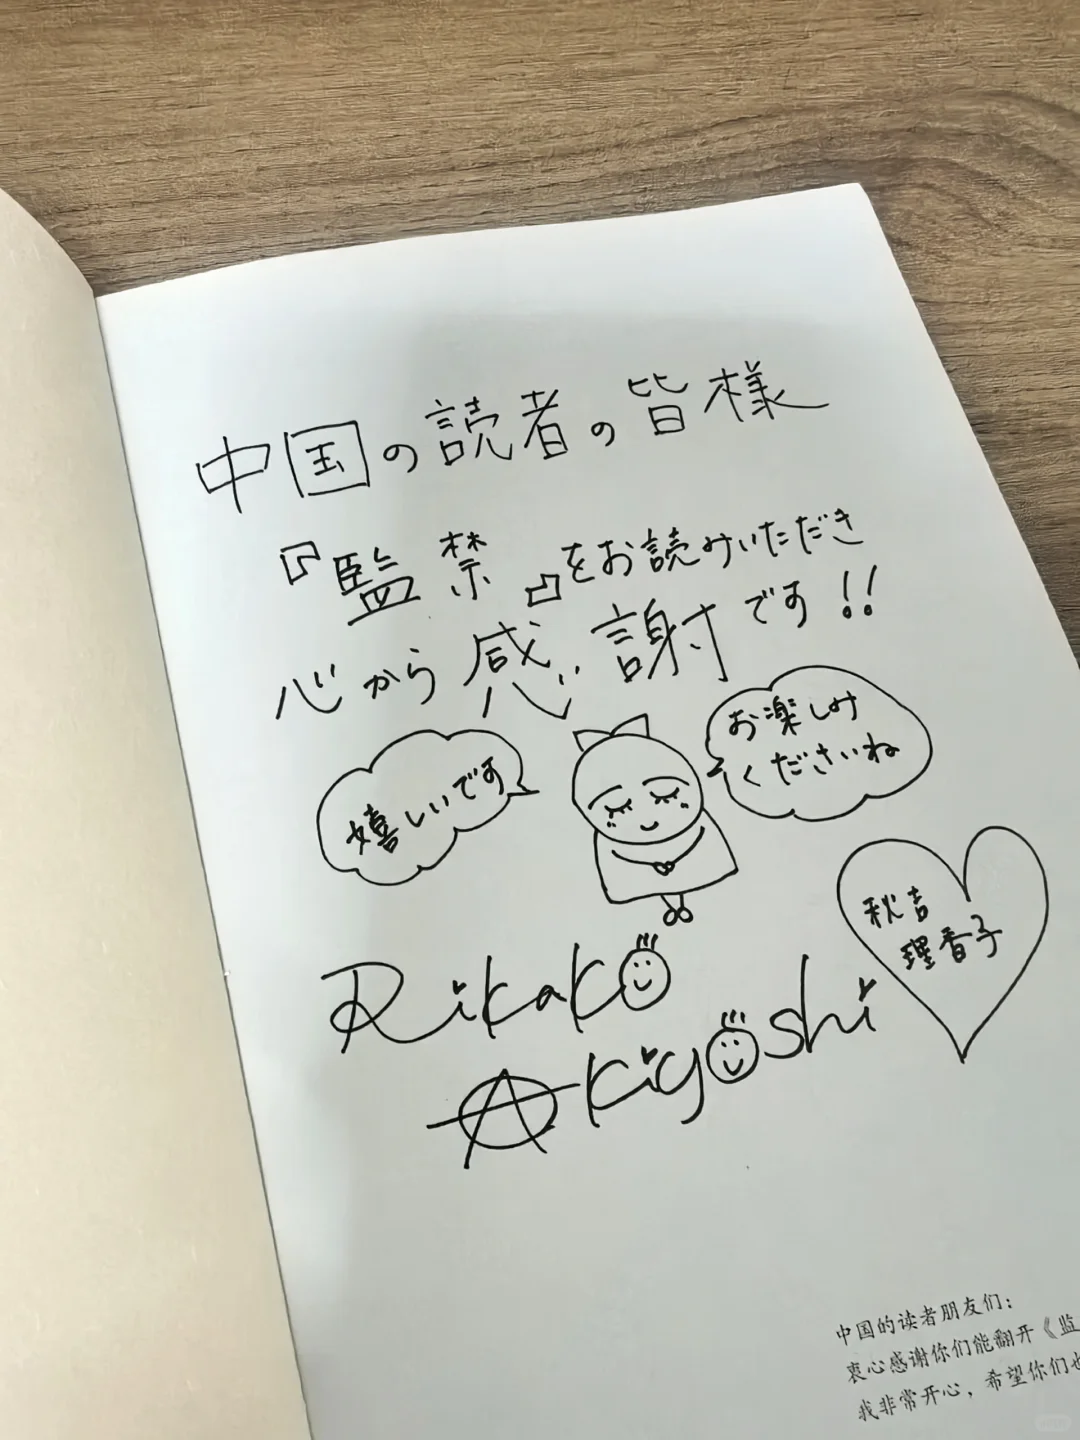 中国の読者の皆様
『監禁』をお読みいただき
心から感謝です!!
嬉しいです
お楽しみ
くださいね
秋吉
理香子
Rikako
Akiyoshi
中国的读者朋友们：
衷心感谢你们能翻开《监
我非常开心，希望你们也